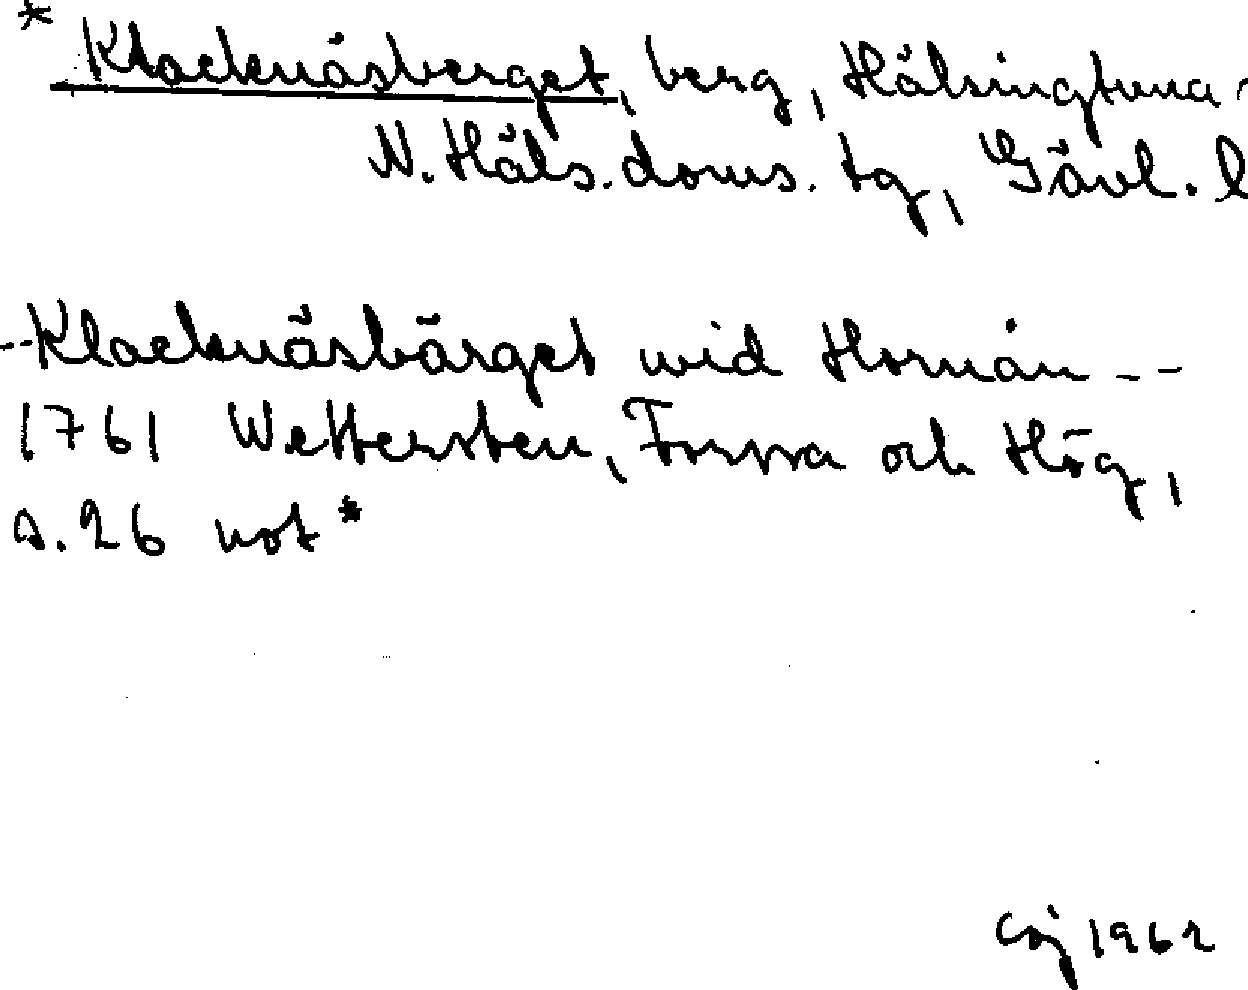 * Klacknäsberget, berg, Hälsingtuna
N. Häls. doms. tg, Gävl. l
--Klacknäsbärget wid Hornån--
1761 Wettersten, Forssa och Hög,
s. 26 not *
CGj 1962